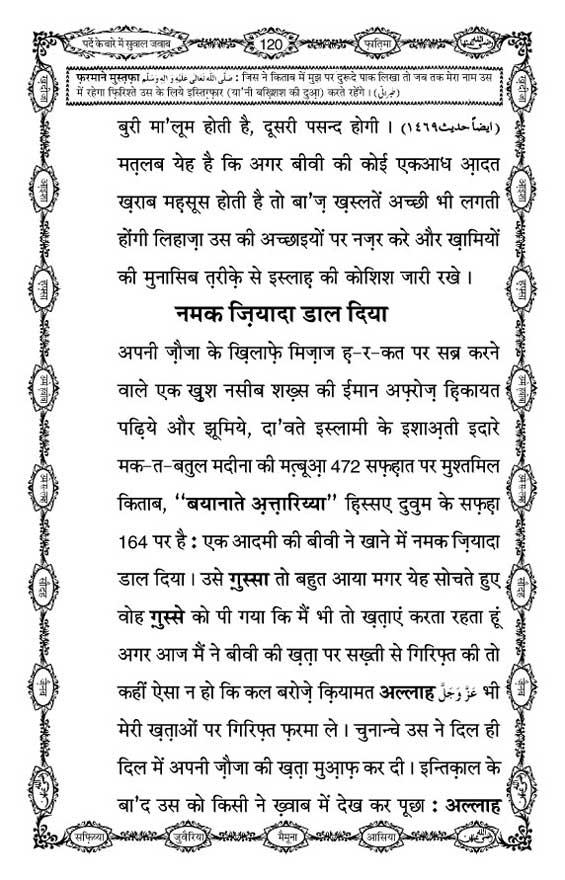 पर्दे के बारे में सुवाल जवाब
120
फ़ातिमा
फ़रमाने मुस्तफ़ा صَلَّى اللّٰهُ تَعَالٰى عَلَيْهِ وَاٰلِهٖ وَسَلَّم : जिस ने किताब में मुझ पर दुरूदे पाक लिखा तो जब तक मेरा नाम उस
में रहेगा फ़िरिश्ते उस के लिये इस्तिग़्फ़ार (या'नी बख़्शिश की दुआ) करते रहेंगे । (طبرانی)
बुरी मा'लूम होती है, दूसरी पसन्द होगी । (ایضاً حدیث ١٤٦٩)
मत़लब येह है कि अगर बीवी की कोई एकआध आ़दत
ख़राब महसूस होती है तो बा'ज़ ख़स्लतें अच्छी भी लगती
होंगी लिहाज़ा उस की अच्छाइयों पर नज़र करे और ख़ामियों
की मुनासिब त़रीक़े से इस्लाह़ की कोशिश जारी रखे ।
नमक ज़ियादा डाल दिया
अपनी ज़ौजा के ख़िलाफ़े मिज़ाज ह़-र-कत पर सब्र करने
वाले एक खुश नसीब शख़्स की ईमान अफ़्रोज़ ह़िकायत
पढ़िये और झूमिये, दा'वते इस्लामी के इशाअ़ती इदारे
मक-त-बतुल मदीना की मत़्बूआ़ 472 सफ़ह़ात पर मुश्तमिल
किताब, ‘‘बयानाते अ़त़्त़ारिय्या’’ हि़स्सए दुवुम के सफ़ह़ा
164 पर है : एक आदमी की बीवी ने खाने में नमक ज़ियादा
डाल दिया । उसे ग़ुस्सा तो बहुत आया मगर येह सोचते हुए
वोह ग़ुस्से को पी गया कि मैं भी तो ख़त़ाएं करता रहता हूं
अगर आज मैं ने बीवी की ख़त़ा पर सख़्ती से गिरिफ़्त की तो
कहीं ऐसा न हो कि कल बरोज़े क़ियामत अल्लाह عَزَّ وَجَلَّ भी
मेरी ख़त़ाओं पर गिरिफ़्त फ़रमा ले । चुनान्चे उस ने दिल ही
दिल में अपनी ज़ौजा की ख़त़ा मुआ़फ़ कर दी । इन्तिक़ाल के
बा'द उस को किसी ने ख़्वाब में देख कर पूछा : अल्लाह
सफ़िय्या
जुवैरिया
मैमूना
आसिया